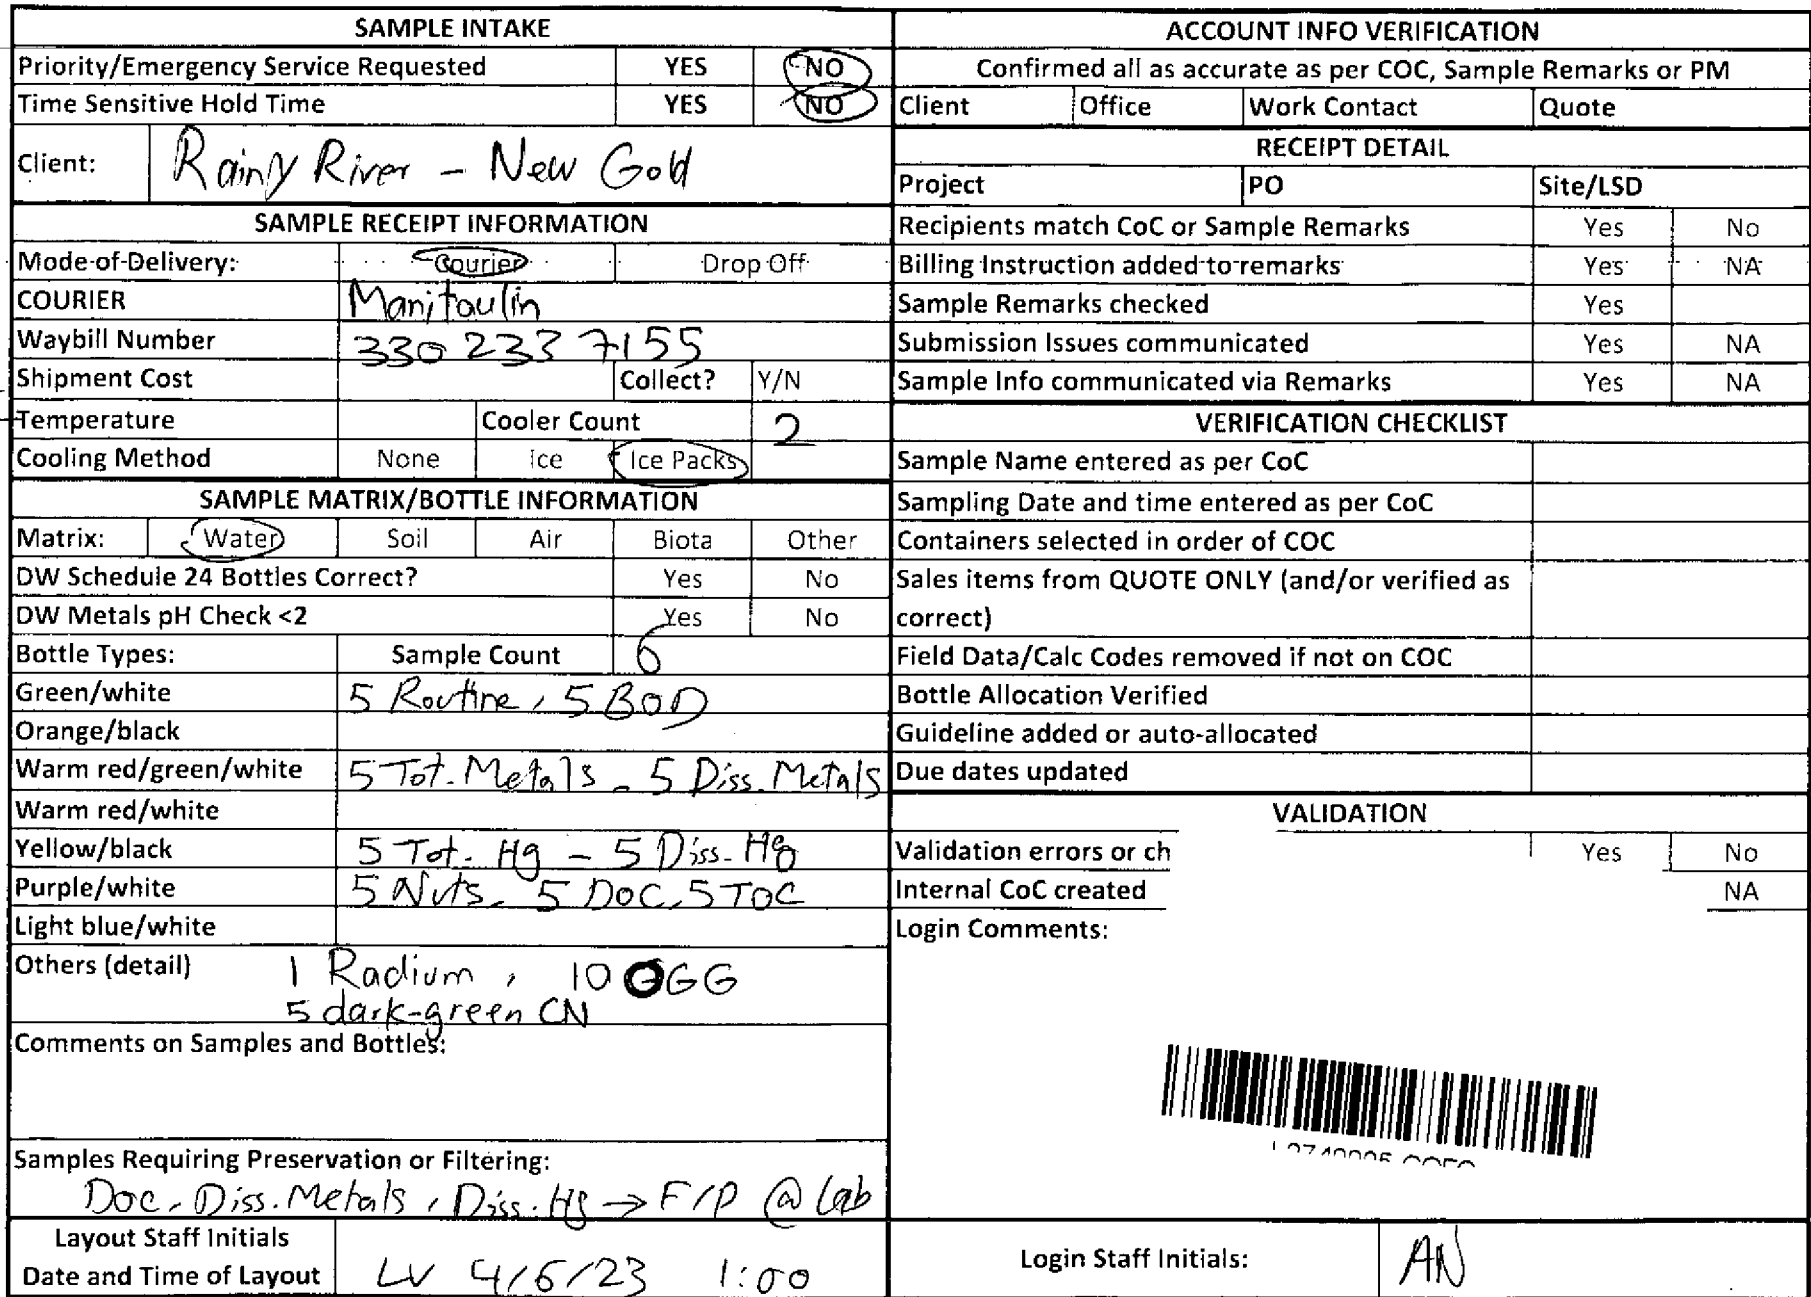 SAMPLE INTAKE
Priority/Emergency Service Requested YES NO
Time Sensitive Hold Time YES NO
Client: Rainy River - New Gold
SAMPLE RECEIPT INFORMATION
Mode of Delivery: Courier Drop Off
COURIER Manitoulin
Waybill Number 330 233 7155
Shipment Cost Collect? Y/N
Temperature Cooler Count 2
Cooling Method None Ice Ice Packs
SAMPLE MATRIX/BOTTLE INFORMATION
Matrix: Water Soil Air Biota Other
DW Schedule 24 Bottles Correct? Yes No
DW Metals pH Check <2 Yes No
Bottle Types: Sample Count 6
Green/white 5 Routine, 5 BOD
Orange/black
Warm red/green/white 5 Tot. Metals - 5 Diss. Metals
Warm red/white
Yellow/black 5 Tot. Hg - 5 Diss. Hg
Purple/white 5 Nuts, 5 DOC, 5 TOC
Light blue/white
Others (detail) 1 Radium, 10 GG
5 dark-green CN
Comments on Samples and Bottles:
Samples Requiring Preservation or Filtering:
Doc, Diss. Metals, Diss. Hg → F/P @ Lab
Layout Staff Initials
Date and Time of Layout LV 4/6/23 1:00
ACCOUNT INFO VERIFICATION
Confirmed all as accurate as per COC, Sample Remarks or PM
Client Office Work Contact Quote
RECEIPT DETAIL
Project PO Site/LSD
Recipients match CoC or Sample Remarks Yes No
Billing Instruction added to remarks Yes NA
Sample Remarks checked Yes
Submission Issues communicated Yes NA
Sample Info communicated via Remarks Yes NA
VERIFICATION CHECKLIST
Sample Name entered as per CoC
Sampling Date and time entered as per CoC
Containers selected in order of COC
Sales items from QUOTE ONLY (and/or verified as
correct)
Field Data/Calc Codes removed if not on COC
Bottle Allocation Verified
Guideline added or auto-allocated
Due dates updated
VALIDATION
Validation errors or ch Yes No
Internal CoC created NA
Login Comments:
Login Staff Initials: AN